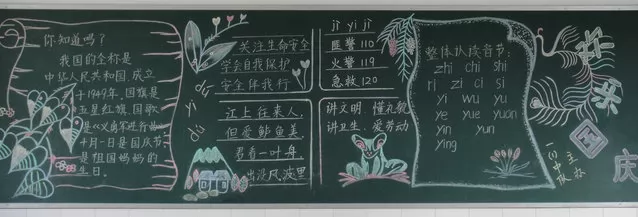 你知道吗？
我国的全称是
中华人民共和国，成立
于1949年，国旗是
五星红旗，国歌
是《义勇军进行曲》
十月一日是国庆节
是祖国妈妈的
生日。
关注生命安全
学会自我保护
安全伴我行
dú yi dú
江上往来人，
但爱鲈鱼美。
君看一叶舟，
出没风波里
jì yi jì
匪警110
火警119
急救120
讲文明、懂礼貌
讲卫生、爱劳动
整体认读音节：
zhi chi shi
ri zi ci si
yi wu yu
ye yue yuan
yin yun
ying
国
庆